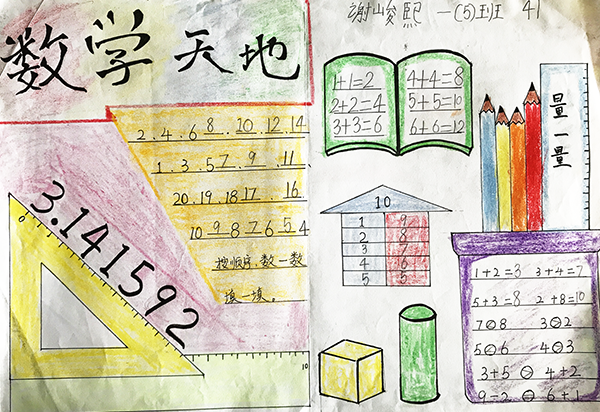 数学天地
谢峻熙 一(5)班 41
2. 4. 6 8 . 10 . 12. 14
1. 3. 5 7 . 9 . 11
20. 19. 18 17 . 16
10 9 8 7 6 5 4
按顺序，数一数
填一填。
3.141592
0
10
1+1=2
2+2=4
3+3=6
4+4=8
5+5=10
6+6=12
10
1 9
2 8
3
4 6
5 5
量一量
1+2=3 3+4=7
5+3=8 2+8=10
7 8 3 2
5 6 4 3
3+5 4+2
9-2 6+1